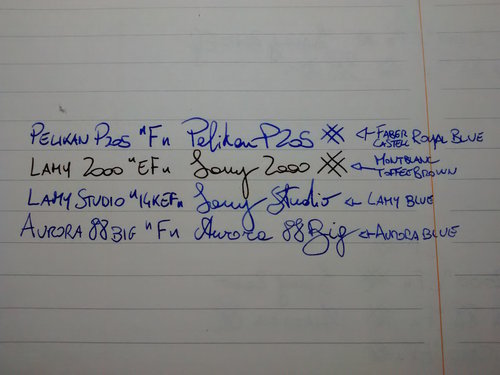 PELIKAN P205 "F" Pelikan P205 ← FABER CASTELL ROYAL BLUE
LAMY 2000 "EF" Lamy 2000 ← MONTBLANC TOFFEE BROWN
LAMY STUDIO "14K EF" Lamy Studio ← LAMY BLUE
AURORA 88 BIG "F" Aurora 88 Big ← AURORA BLUE